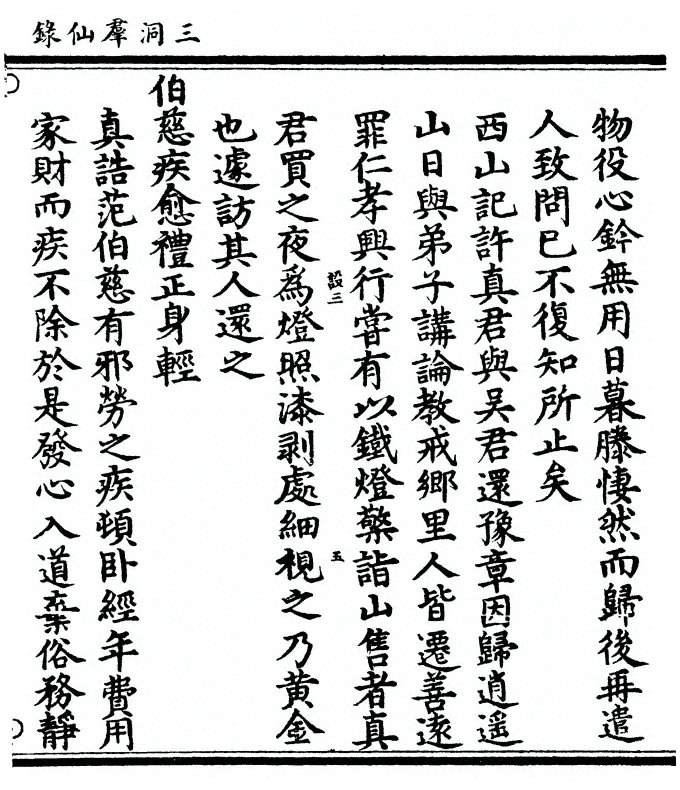 三洞羣仙錄
物役心鈴無用日暮滕悽然而歸後再遣
人致問已不復知所止矣
西山記許真君與吴君還豫章因歸逍遥
山日與弟子講論教戒鄉里人皆遷善遠
罪仁孝興行嘗有以鐵燈檠詣山售者真
設三
五
君買之夜爲燈照漆剥處細視之乃黄金
也遽訪其人還之
伯慈疾愈禮正身輕
真誥范伯慈有邪勞之疾頓卧經年費用
家財而疾不除於是發心入道棄俗務靜